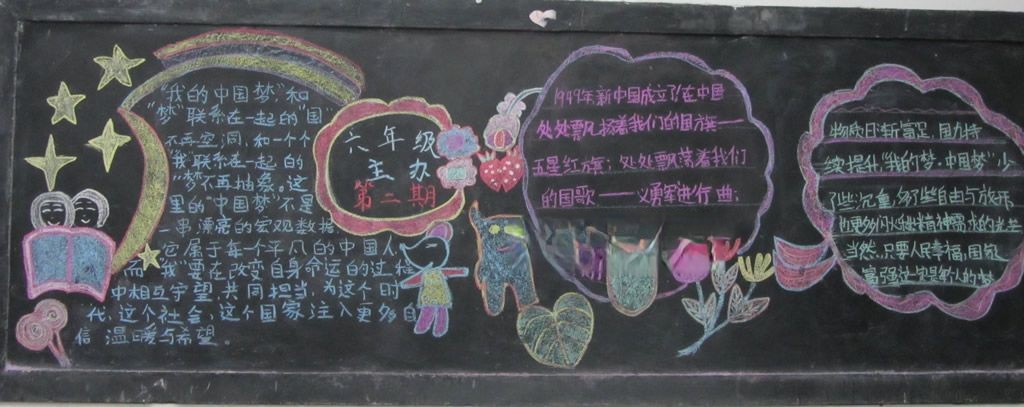 "我的中国梦"和
"梦"联系在一起的"国"
不再空洞,和一个个
"我"联系在一起的
"梦"不再抽象。这
里的"中国梦"不是
一串漂亮的宏观数据,
它属于每个平凡的中国人,
而"我"要在改变自身命运的过程
中相互守望,共同担当,为这个时
代,这个社会,这个国家注入更多自
信、温暖与希望。
六年级
主办
第二期
1949年新中国成立了在中国
处处飘扬着我们的国旗——
五星红旗;处处飘荡着我们
的国歌——义勇军进行曲;
物质日渐富足,国力持
续提升,"我的梦,中国梦"少
了些沉重,多了些自由与放开
当然,只要人民幸福,国家
富强